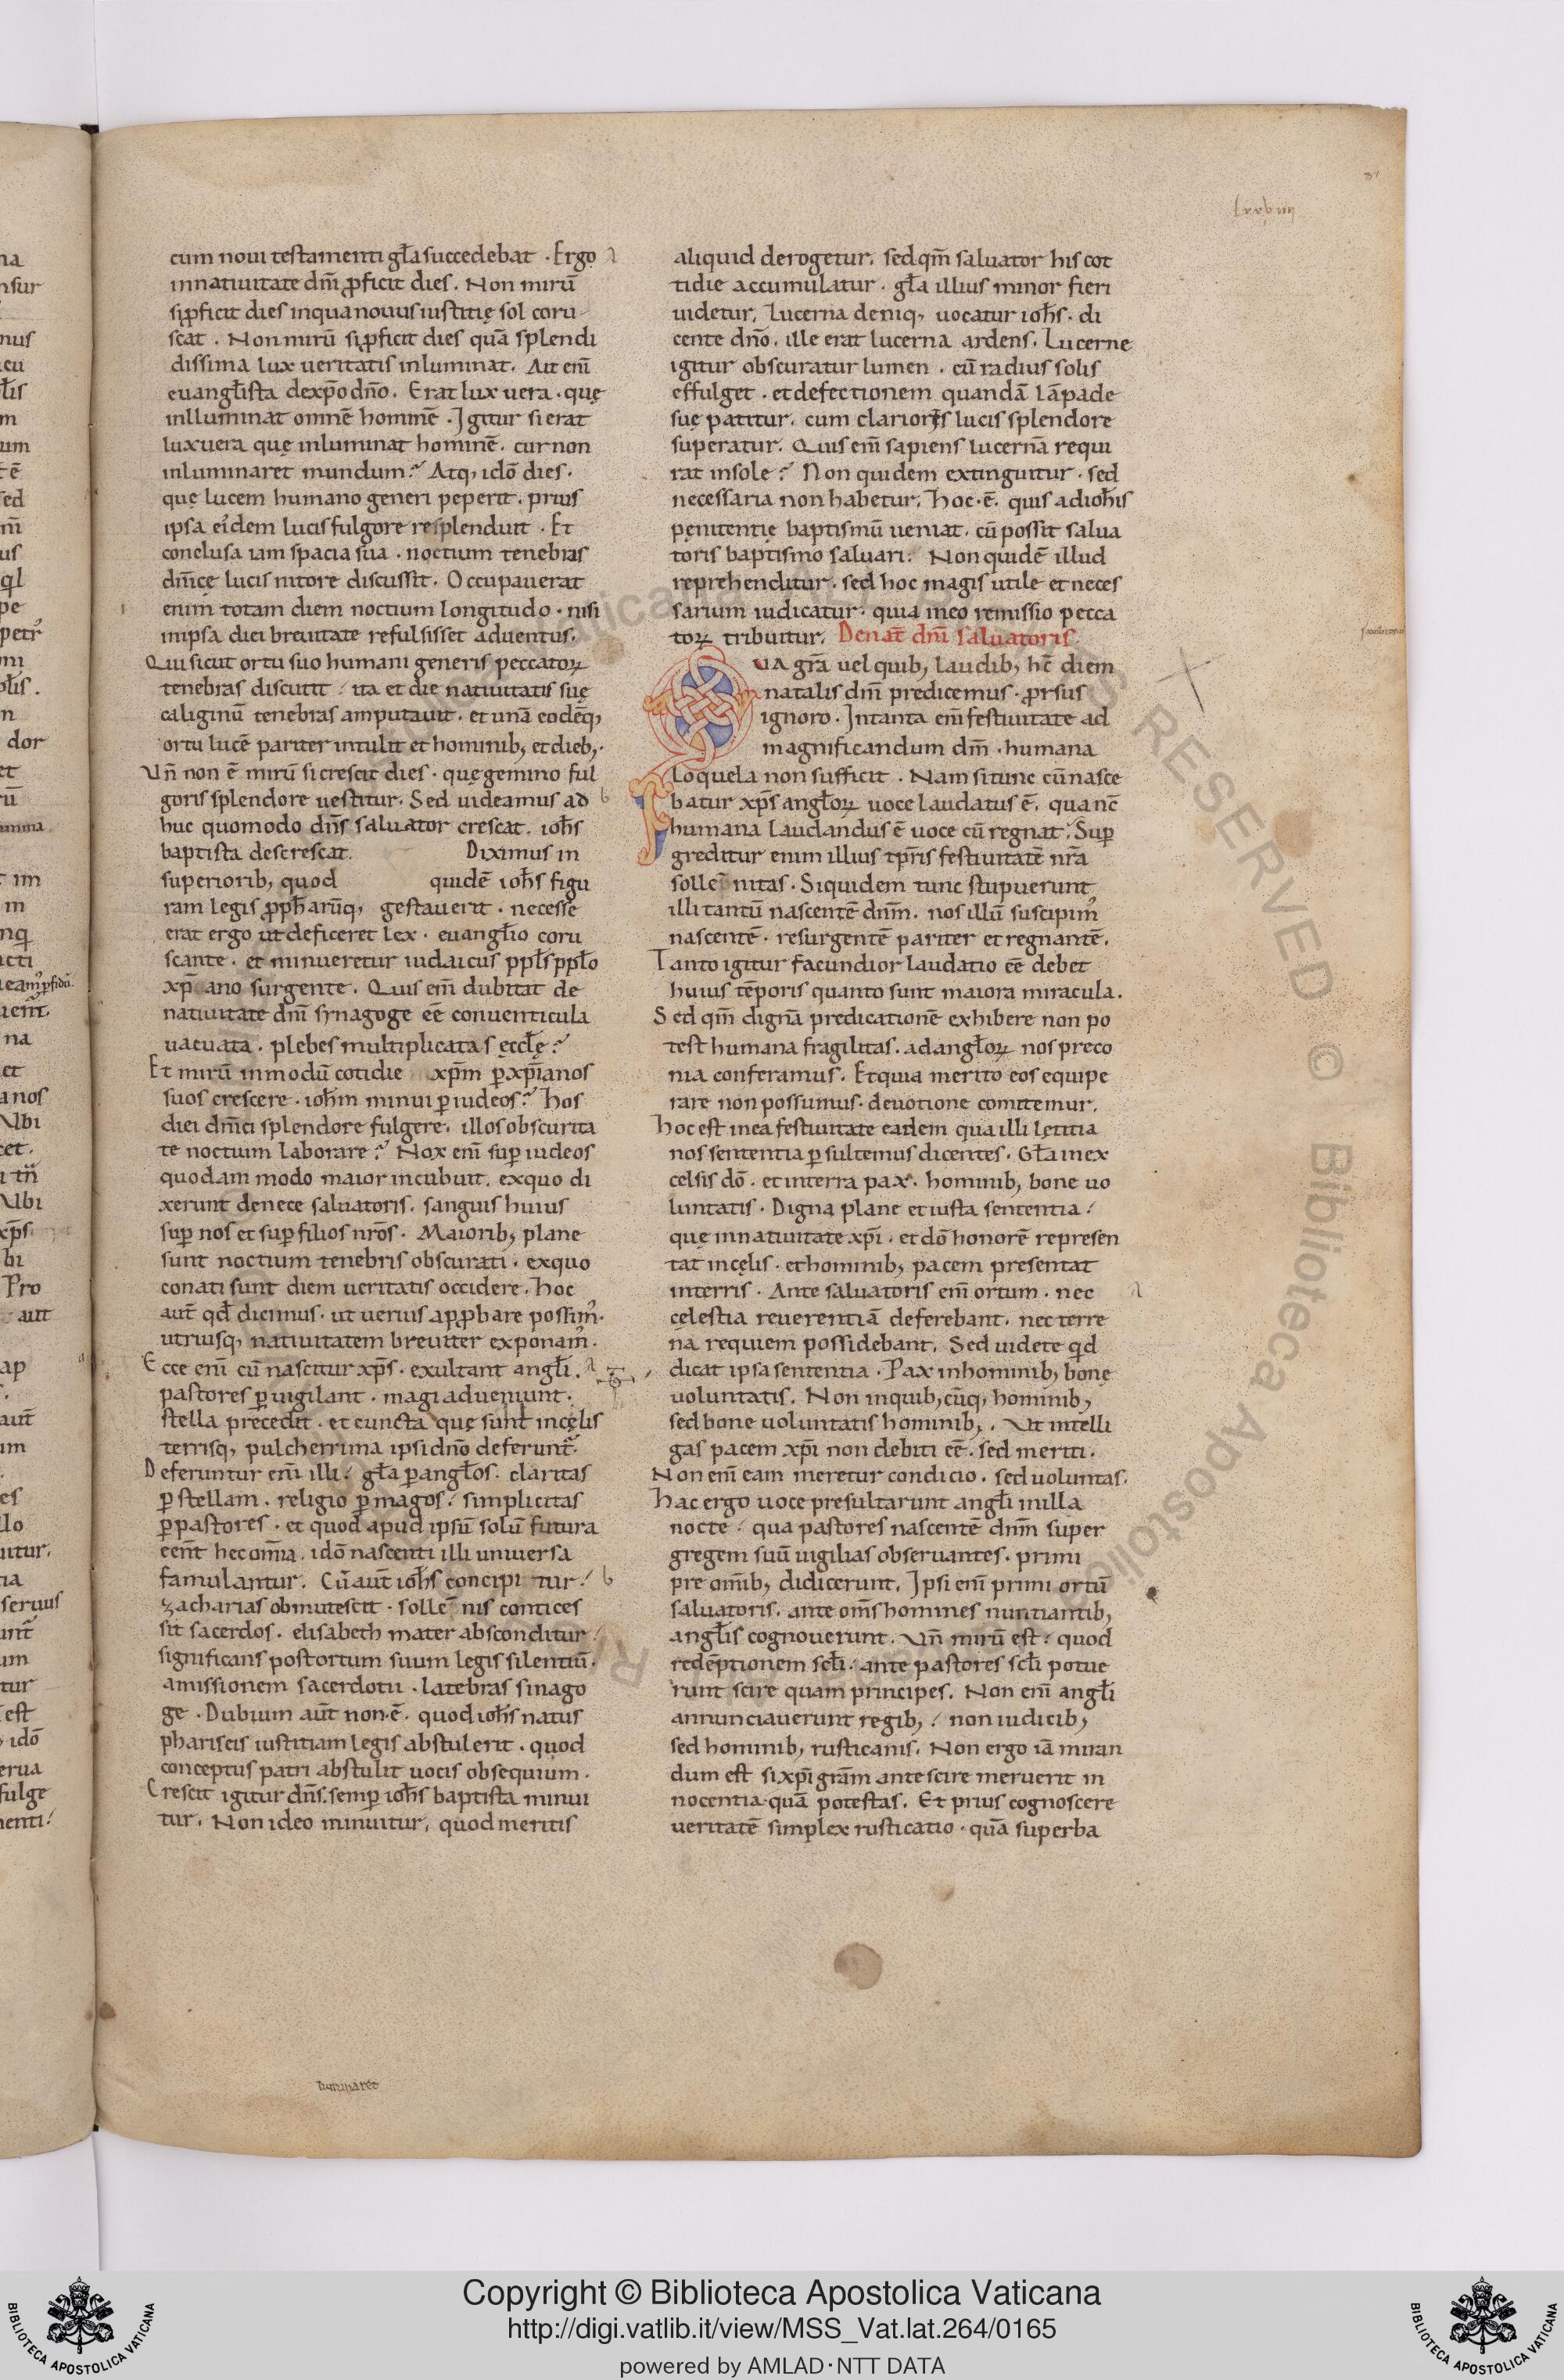 cum noui testamenti gła succedebat . Ergo
innatiuitate dm̄ ꝓficit dies . Non mirū
siꝓficit dies inqua nouus iustitię sol coru-
scat . Non mirū siꝓficit dies quā splendi
dissima lux ueritatis inluminat . Ait eni͞
euangƚista dexp̄o dn̄o . Erat lux uera . quę
inlluminat omnē hominē . Igitur si erat
lux uera quę inluminat hominē . cur non
inluminaret mundum? Atq; idō dies .
quę lucem humano generi peperit . prius
ipsa eidem lucis fulgore resplenduit . Et
conclusa iam spacia sua . noctium tenebras
dn̄icę lucis nitore discussit . Occupauerat
enim totam diem noctium longitudo . nisi
inipsa diei breuitate refulsisset aduentus .
Qui sicut ortu suo humani generis peccatoꝝ
tenebras discutit / ita et die natiuitatis suę
caliginū tenebras amputauit . et unā eodēq;
ortu lucē pariter intulit et hominib; et dieb; .
Vn̄ non ē mirū si crescit dies . quę gemino ful
goris splendore uestitur . Sed uideamus ad
huc quomodo dn̄s saluator crescat . ioħs
baptista descrescat . Diximus in
superiorib; quod quidē ioħs figu
ram legis ꝓpħarūq; gestauerit . necesse
erat ergo ut deficeret lex . euangƚio coru
scante . et minueretur iudaicus ppƚs ppƚo
xp̄ ano surgente . Quis eni͞ dubitat de
natiuitate dn̄i synagoge ēē conuenticula
uacuata . plebes multiplicatas ęccƚę?
Et mirū inmodū cotidie xp̄m ꝑ xp̄ianos
suos crescere . ioħm minui ꝑ iudeos? Hos
diei dn̄ici splendore fulgere . illos obscurita
te noctium laborare? Nox eni͞ suꝑ iudeos
quodam modo maior incubuit . exquo di
xerunt denece saluatoris . sanguis huius
suꝑ nos et suꝑ filios nr̄os . Maiorib; plane
sunt noctium tenebris obscurati . exquo
conati sunt diem ueritatis occidere . Hoc
aut̄ qd̄ dicimus . ut uerius apꝓbare possim᾽ .
utriusq; natiuitatem breuiter exponam᾽ .
Ecce eni͞ cū nascitur xp̄s . exultant angƚi .
pastores ꝑuigilant . magi adueniunt .
stella precedit . et cuncta quę sunt incęlis
terrisq; pulcherrima ipsi dn̄o deferunt̄ .
Deferuntur eni͞ illi / gƚa ꝑ angƚos . claritas
ꝑ stellam . religio ꝑ magos / simplicitas
ꝑ pastores . et quod apud ipsū solū futura
eent̄ hec om̄ia . idō nascenti illi uniuersa
famulantur . Cū aut̄ ioħs concipi tur /
zacharias obmutescit . solle͞ nis contices
sit sacerdos . elisabeth mater absconditur /
significans post ortum suum legis silentiū .
amissionem sacerdotii . latebras sinago
ge . Dubium aut̄ non . ē . quod ioħs natus
phariseis iustitiam legis abstulerit . quod
conceptus patri abstulit uocis obsequium .
Crescit igitur dn̄s . semꝑ ioħs baptista minui
tur . Non ideo minuitur , quod meritis
aliquid derogetur . sed qm̄ saluator his cot
tidie accumulatur . gƚa illius minor fieri
uidetur . Lucerna deniq; uocatur ioħs . di
cente dn̄o . ille erat lucerna ardens . Lucerne
igitur obscuratur lumen . cū radius solis
effulget . et defectionem quandā lāpade
suę patitur . cum clarioris lucis splendore
superatur . Quis eni͞ sapiens lucernā requi
rat insole? Non quidem extinguitur . sed
necessaria non habetur . Hoc . ē . quis ad ioħis
pęnitentię baptismū ueniat . cū possit salua
toris baptismo saluari . Non quidē illud
reprehenditur . sed hoc magis utile et neces
sarium iudicatur . quia ineo remissio pecca
toꝝ tribuitur . De nat̄ dn̄i saluatoris .
QVA gr̄a uel quib; laudib; hc̄ diem
natalis dn̄i predicemus . ꝓrsus
ignoro . Intanta eni͞ festiuitate ad
magnificandum dm̄ . humana
loquela non sufficit . Nam si tunc cū nasce
batur xp̄s angƚoꝝ uoce laudatus ē . qua nc̄
humana laudandus ē uoce cū regnat . Suꝑ
greditur enim illius tp̄ris festiuitatē nr̄a
solle͞ nitas . Siquidem tunc stupuerunt
illi tantū nascentē dn̄m . nos illū suscipim᾽
nascentē . resurgentē pariter et regnantē .
Tanto igitur facundior laudatio ēē debet
huius tēporis quanto sunt maiora miracula .
Sed qm̄ dignā predicationē exhibere non po
test humana fragilitas . ad angƚoꝝ nos preco
nia conferamus . Et quia merito eos equipe
rare non possumus . deuotione comitemur .
Hoc est inea festiuitate eadem qua illi lętitia
nos sententia ꝑsultemus dicentes . Gƚa inex
celsis dō . et interra pax . hominib; bone uo
luntatis . Digna plane et iusta sententia /
quę innatiuitate xp̄i . et dō honorē represen
tat incęlis . et hominib; pacem presentat
interris . Ante saluatoris eni͞ ortum . nec
cęlestia reuerentiā deferebant . nec terre
na requiem possidebant . Sed uidete qd̄
dicat ipsa sententia . Pax inhominib; bonę
uoluntatis . Non inquib; cūq; hominib;
sed bone uoluntatis hominib; . Vt intelli
gas pacem xp̄i non debiti ēē . sed meriti .
Non eni͞ eam meretur condicio . sed uoluntas .
Hac ergo uoce presultarunt angƚi inilla
nocte / qua pastores nascentē dn̄m super
gregem suū uigilias obseruantes . primi
pre om̄ib; didicerunt . Ipsi eni͞ primi ortū
saluatoris . ante om̄s homines nuntiantib;
angƚis cognouerunt . Vn̄ mirū est / quod
redēptionem scƚi / ante pastores scƚi potue
runt scire quam principes . Non eni͞ angƚi
annunciauerunt regib; / non iudicib;
sed hominib; rusticanis . Non ergo iā miran
dum est si xp̄i gr̄am ante scire meruerit in
nocentia quā potestas . Et prius cognoscere
ueritatē simplex rusticatio . quā superba
luminaret
Copyright © Biblioteca Apostolica Vaticana
http://digi.vatlib.it/view/MSS_Vat.lat.264/0165
powered by AMLAD·NTT DATA
BIBLIOTECA APOSTOLICA VATICANA
BIBLIOTECA APOSTOLICA VATICANA